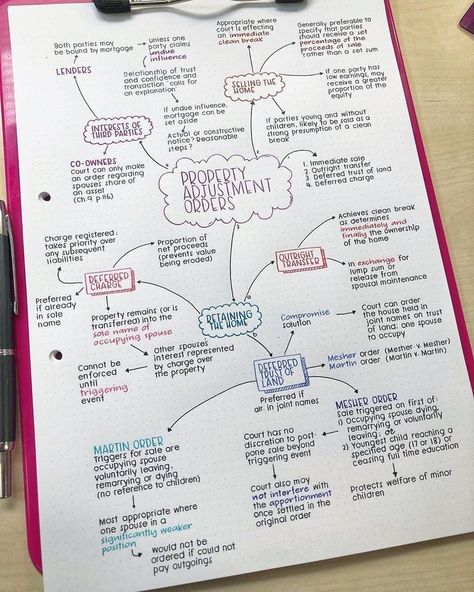 Both parties may
be bound by mortgage
unless one
party claims
undue
influence
LENDERS
Relationship of trust
and confidence and
transaction "calls for
an explanation"
If undue influence,
mortgage can be
set aside
Actual or constructive
notice? Reasonable
steps?
INTERESTS OF
THIRD PARTIES
CO-OWNERS
Court can only make
an order regarding
spouses share of
an asset
(Ch.9 p116)
Appropriate where
court is effecting
an immediate
clean break
Generally preferable
to specify that parties
should receive a set
percentage of the
proceeds of sale
rather than a set sum
SELLING THE
HOME
If one party has
low earnings, may
receive a greater
proportion of the
equity
If parties young and without
children, likely to be sold as a
strong presumption of a clean
break
PROPERTY
ADJUSTMENT
ORDERS
1. Immediate sale
2. Outright transfer
3. Deferred trust of land
4. Deferred charge
Achieves clean break
as determines
immediately and
finally the ownership
of the home
OUTRIGHT
TRANSFER
in exchange for
lump sum or
release from
spousal maintenance
Charge registered;
takes priority over
any subsequent
liabilities
Proportion of
net proceeds
(prevents value
being eroded)
DEFERRED
CHARGE
Preferred
if already
in sole
name
Property remains (or is
transferred) into the
sole name of
occupying spouse
RETAINING
THE HOME
Other spouses
interest represented
by charge over
the property
Cannot be
enforced
until
triggering
event
Compromise
solution
Court can order
the house held in
joint names on trust
of land; one spouse
to occupy
DEFERRED
TRUST OF
LAND
Mesher order (Mesher v. Mesher)
Martin order (Martin v. Martin)
Preferred if
air in joint names
MARTIN ORDER
Triggers for sale are
occupying spouse
voluntarily leaving,
remarrying or dying
(no reference to children)
Most appropriate where
one spouse in a
significantly weaker
position
would not be
ordered if could not
pay outgoings
Court has
no discretion to post-
pone sale beyond
triggering event
Court also may
not interfere with
the apportionment
once settled in the
original order
MESHER ORDER
Sale triggered on first of:
1) Occupying spouse dying,
remarrying or voluntarily
leaving; or
2) Youngest child reaching a
specified age (17 or 18) or
ceasing full time education
Protects welfare of minor
children